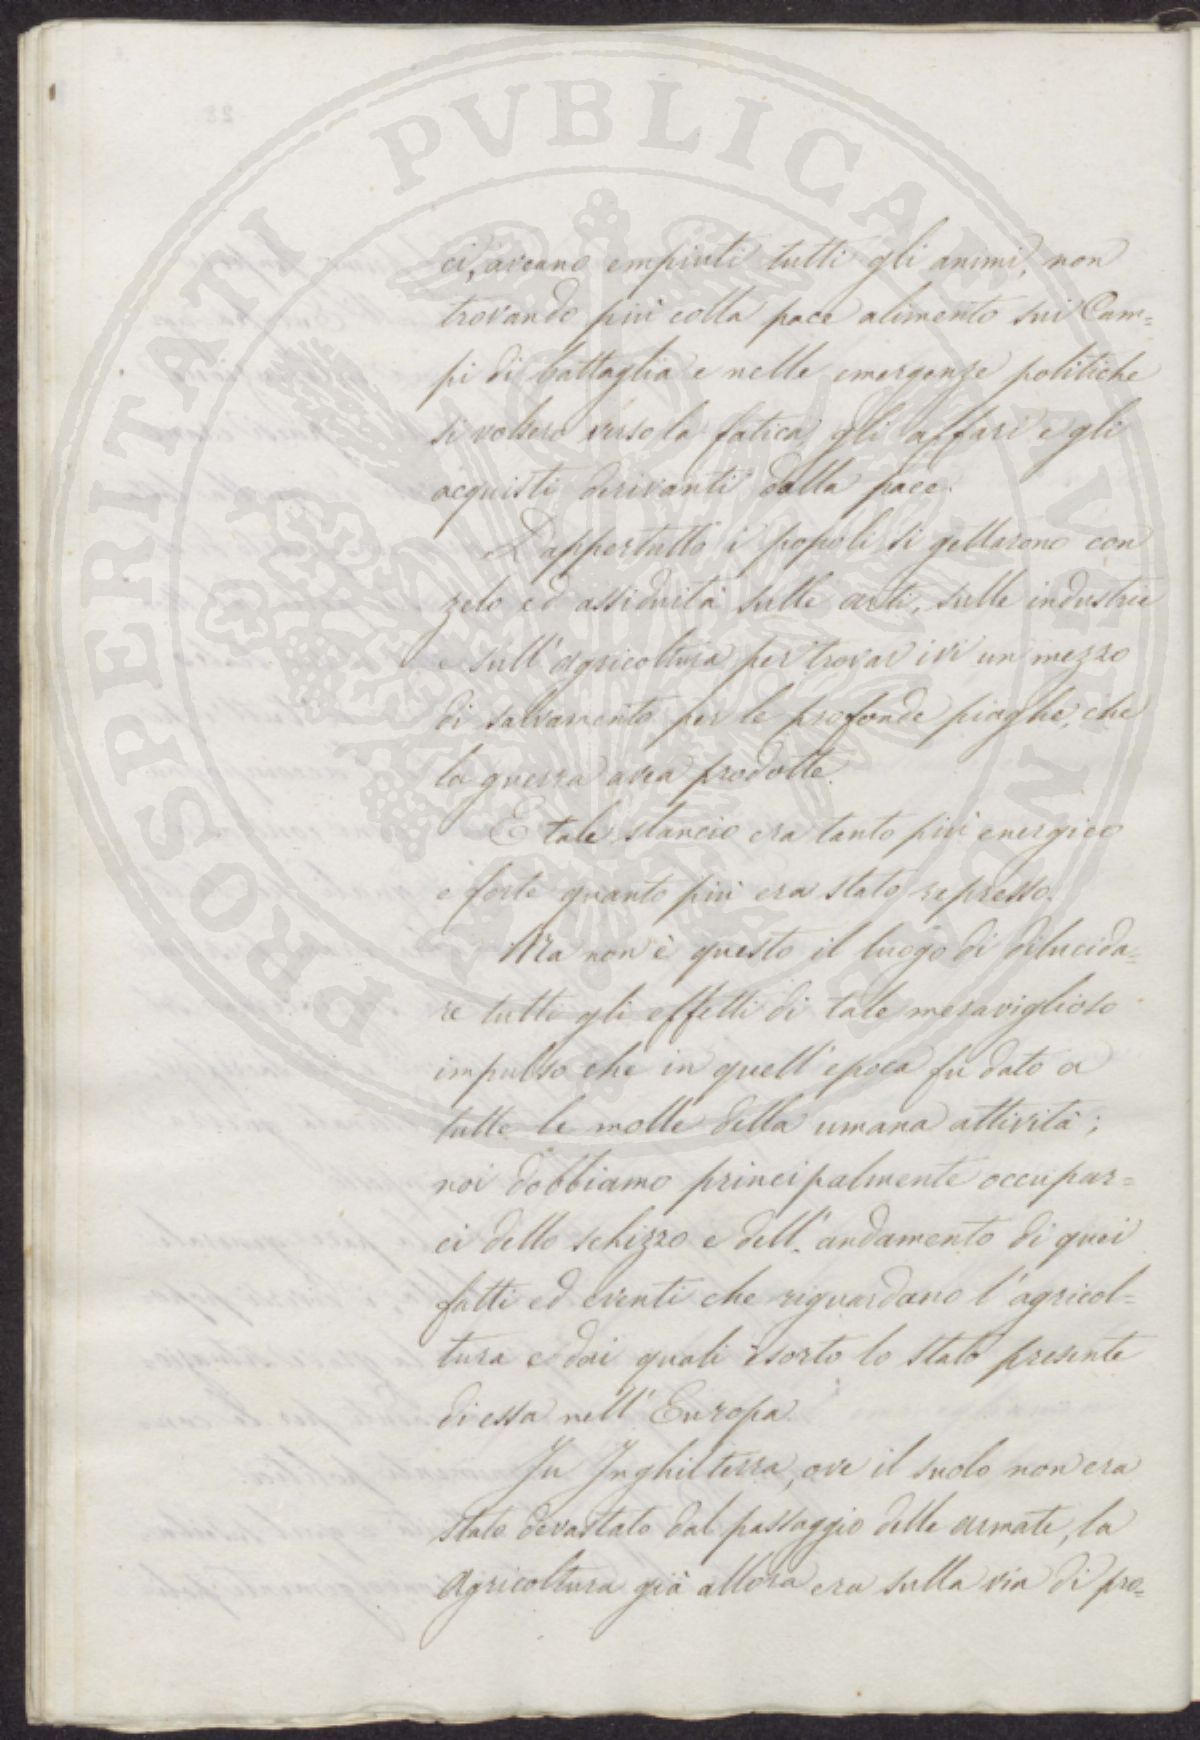 PROSPERITATI PVBLICAE AVGENDAE
ci, aveano empiuti tutti gli animi, non
trovando più colla pace alimento sui Cam=
pi di battaglia e nelle emergenze politiche
si volsero verso la fatica, gli affari e gli
acquisti derivanti dalla pace.
Dappertutto i popoli si gettarono con
zelo ed assiduità sulle arti, sulle industrie
e sull'agricoltura per trovar ivi un mezzo
di salvamento per le profonde piaghe, che
la guerra avea prodotte.
E tale slancio era tanto più energico
e forte quanto più era stato represso.
Ma non è questo il luogo di dilucida=
re tutti gli effetti di tale meraviglioso
impulso che in quell'epoca fu dato a
tutte le molle della umana attività;
noi dobbiamo principalmente occupar=
ci dello schizzo e dell'andamento di quei
fatti ed eventi che riguardano l'agricol=
tura e dai quali è sorto lo stato presente
di essa nell'Europa.
In Inghilterra, ove il suolo non era
stato devastato dal passaggio delle armate, la
agricoltura già allora era sulla via di pro=